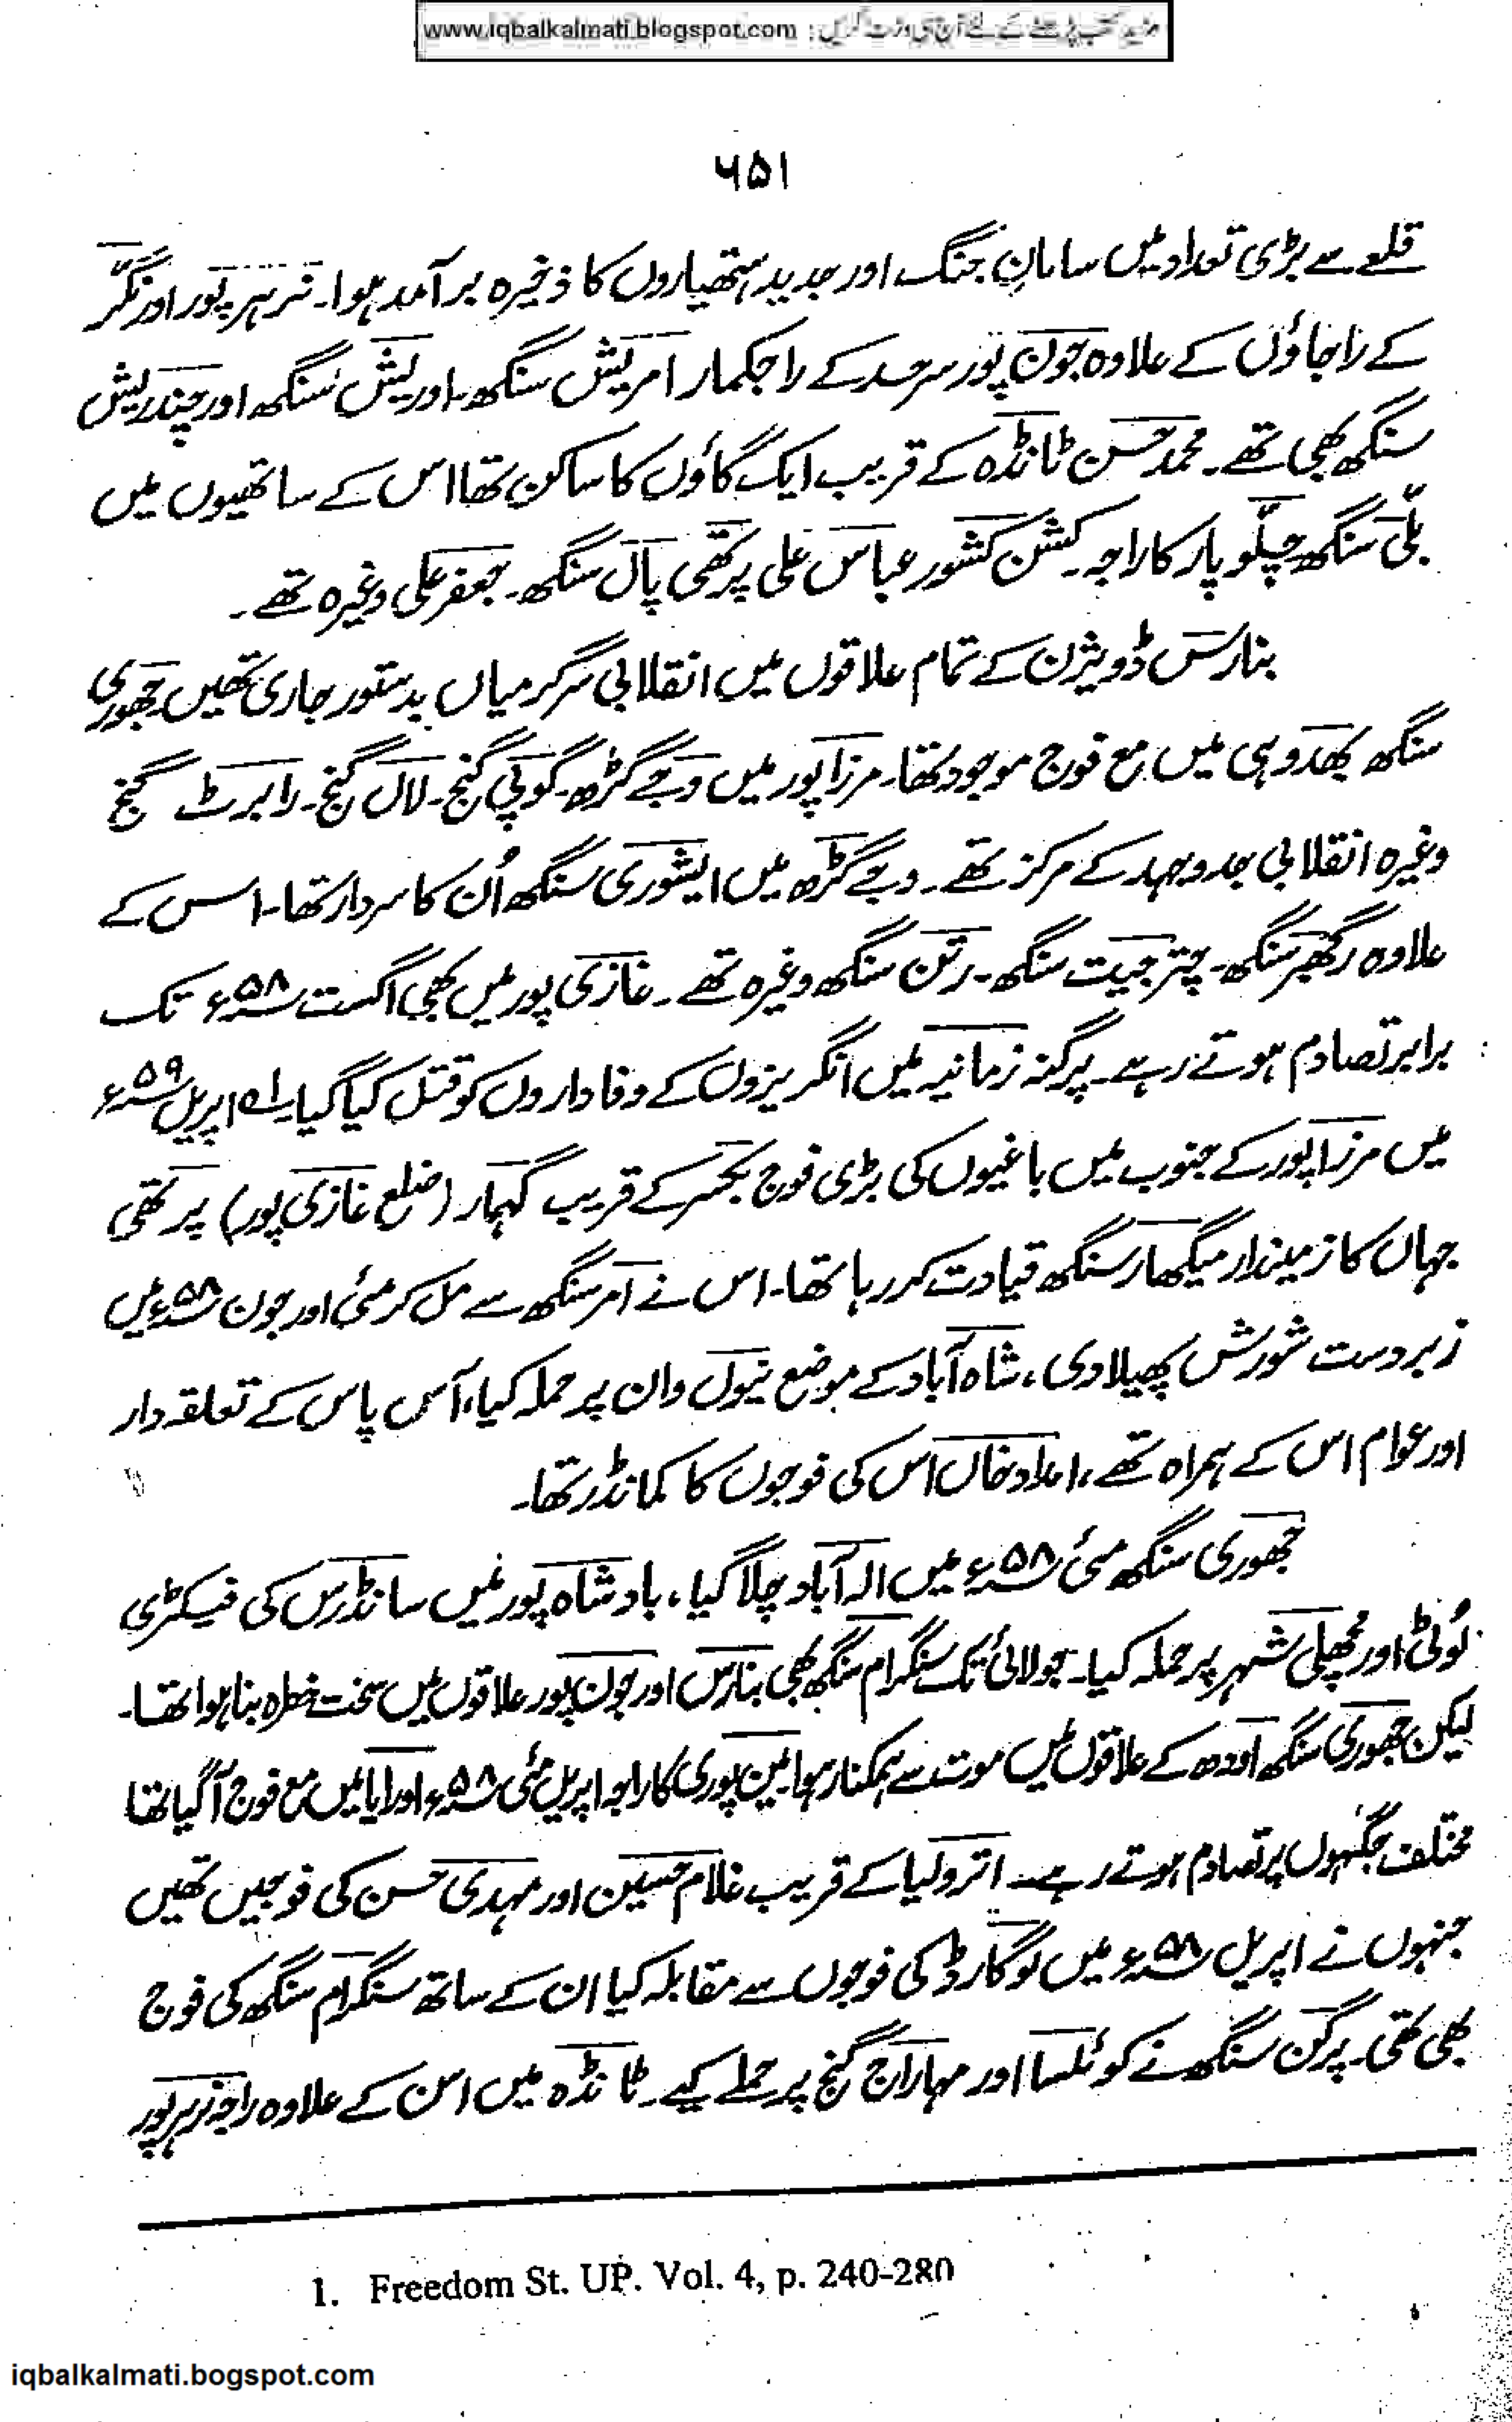 www.iqbalkalmati.blogspot.com : مزید کتب پڑھنے کے لئے آج ہی وزٹ کریں
۶۵۱
قلعے سے بڑی تعداد میں سامانِ جنگ اور جدید ہتھیاروں کا ذخیرہ برآمد ہوا۔ نرہرپور اور نگر
کے راجاؤں کے علاوہ جون پور سرحد کے راجکمار امریش سنگھ۔ اوریش سنگھ اور چندریش
سنگھ بھی تھے۔ محمد حسن ٹانڈہ کے قریب ایک گاؤں کا ساکن تھا اس کے ساتھیوں میں
بلّی سنگھ چلّو پار کا راجہ۔ کشن کشور عباس علی پرتھی پال سنگھ۔ جعفر علی وغیرہ تھے۔
بنارس ڈویژن کے تمام علاقوں میں انقلابی سرگرمیاں بدستور جاری تھیں جھوری
سنگھ بھدوہی میں مع فوج موجود تھا۔ مرزاپور میں وجے گڑھ۔ گوپی گنج۔ لال گنج۔ رابرٹ گنج
وغیرہ انقلابی جدوجہد کے مرکز تھے۔ وجے گڑھ میں ایشوری سنگھ اُن کا سردار تھا۔ اس کے
علاوہ رگھبر سنگھ۔ چترجیت سنگھ۔ رتن سنگھ وغیرہ تھے۔ غازی پور میں بھی اگست ۵۸ء تک
برابر تصادم ہوتے رہے۔ پرگنہ زمانیہ میں انگریزوں کے وفاداروں کو قتل کیا گیا۔ لہ اپریل ۵۹ء
میں مرزاپور کے جنوب میں باغیوں کی بڑی فوج بکسر کے قریب گہمار (ضلع غازی پور) پر تھی
جہاں کا زمیندار میگھار سنگھ قیادت کر رہا تھا۔ اس نے امر سنگھ سے مل کر مئی اور جون ۵۸ء میں
زبردست شورش پھیلا دی، شاہ آباد کے موضع نیول وان پر حملہ کیا، آس پاس کے تعلقہ دار
اور عوام اس کے ہمراہ تھے، امداد خاں اس کی فوجوں کا کمانڈر تھا۔
جھوری سنگھ مئی ۵۸ء میں الہ آباد چلا گیا، بادشاہ پور میں سانڈرس کی فیکٹری
لُوٹی اور مچھلی شہر پر حملہ کیا۔ جولائی تک سنگرام سنگھ بھی بنارس اور جون پور علاقوں میں سخت خطرہ بنا ہوا تھا۔
لیکن جھوری سنگھ اودھ کے علاقوں میں موت سے ہمکنار ہوا مین پوری کا راجہ اپریل مئی ۵۸ء اورایا میں مع فوج آ گیا تھا
مختلف جگہوں پر تصادم ہوتے رہے۔ اترولیا کے قریب غلام حسین اور مہدی حسن کی فوجیں تھیں
جنہوں نے اپریل ۵۸ء میں لوگارڈ کی فوجوں سے مقابلہ کیا ان کے ساتھ سنگرام سنگھ کی فوج
بھی تھی۔ پرگن سنگھ نے کوئلسا اور مہاراج گنج پر حملے کیے۔ ٹانڈہ میں اس کے علاوہ راجہ نرہرپور
1. Freedom St. UP. Vol. 4, p. 240-280
iqbalkalmati.bogspot.com